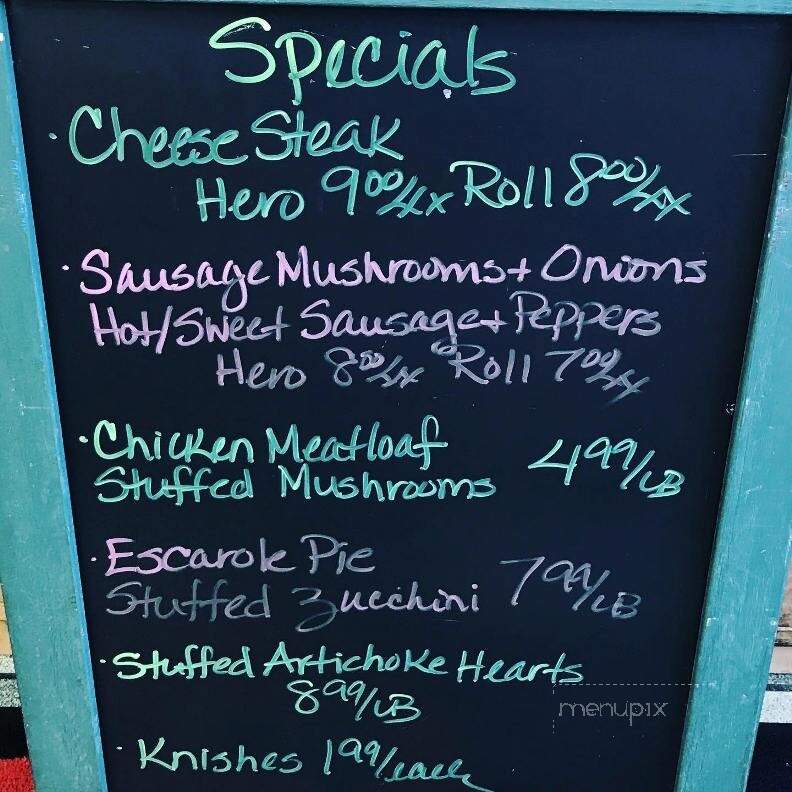 Specials
· Cheese Steak
Hero 9.00/tx Roll 8.00/tx
· Sausage Mushrooms + Onions
Hot/Sweet Sausage + Peppers
Hero 8.00/tx Roll 7.00/tx
· Chicken Meatloaf
Stuffed Mushrooms 4.99/LB
· Escarole Pie
Stuffed Zucchini 7.99/LB
· Stuffed Artichoke Hearts
8.99/LB
menupix
· Knishes 1.99/each